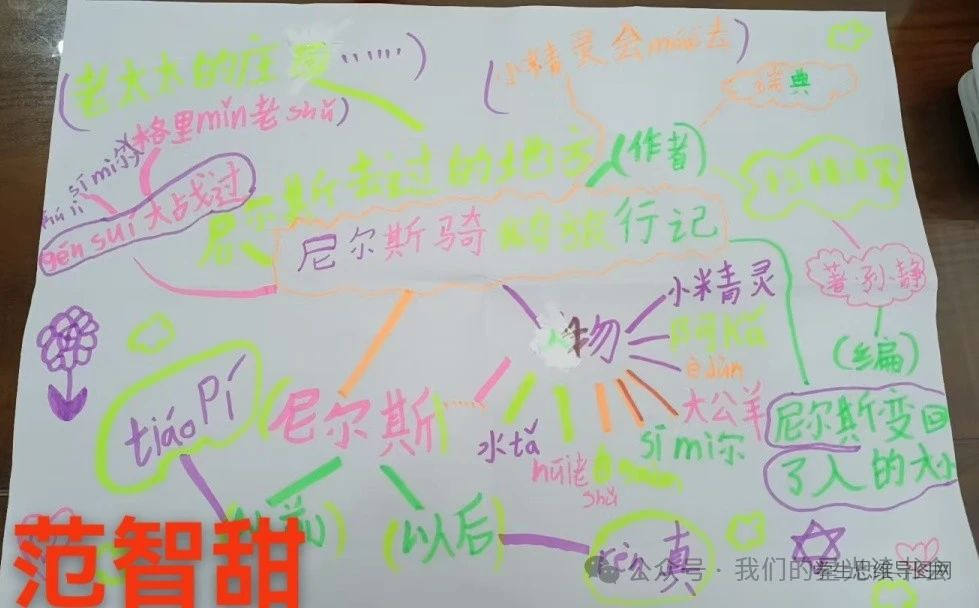 (老太太的庄……)
(小精灵会 去)
瑞典
格里mǐn老shǔ)
sī mì尔
(作者)
尼尔斯去过的地方
gēn suí大战过
尼尔斯骑鹅旅行记
著·孙·静
小米青灵
阿kǎ
(编)
人物
大公羊
尼尔斯变回
了人的大小
tiáo pí
(尼尔斯)
水tǎ
huī老
shǔ
sī mì尔
(以前)
(以后)
rèn真
范智甜
公众号·我们的
学生思维导图网